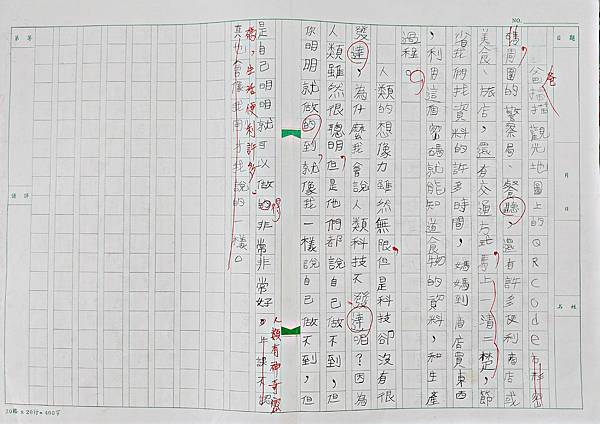 NO.
爸掃描觀光地圖上的QRCode
周圍的警察局、餐廳,還有許多便利商店或
美食、旅店,還有交通方式馬上一清二楚,節
省我們找資料的許多時間,媽媽到商店買東西
,利用這個密碼就能知道食物的資料,和生產
過程。
人類的想像力雖然無限,但是科技卻沒有很
發達,為什麼我會說人類科技不發達呢?因為
人類雖然很聰明,但是他們都說自己做不到,但
你明明就做的到,就像我一樣說自己做不到,但
是自己明明就可以做的非常非常好。
生活便利許多。
人類有神奇
真的會像我剛才我說的一樣。
題目
月
日
姓名
等第
評語
20格×20行=400字